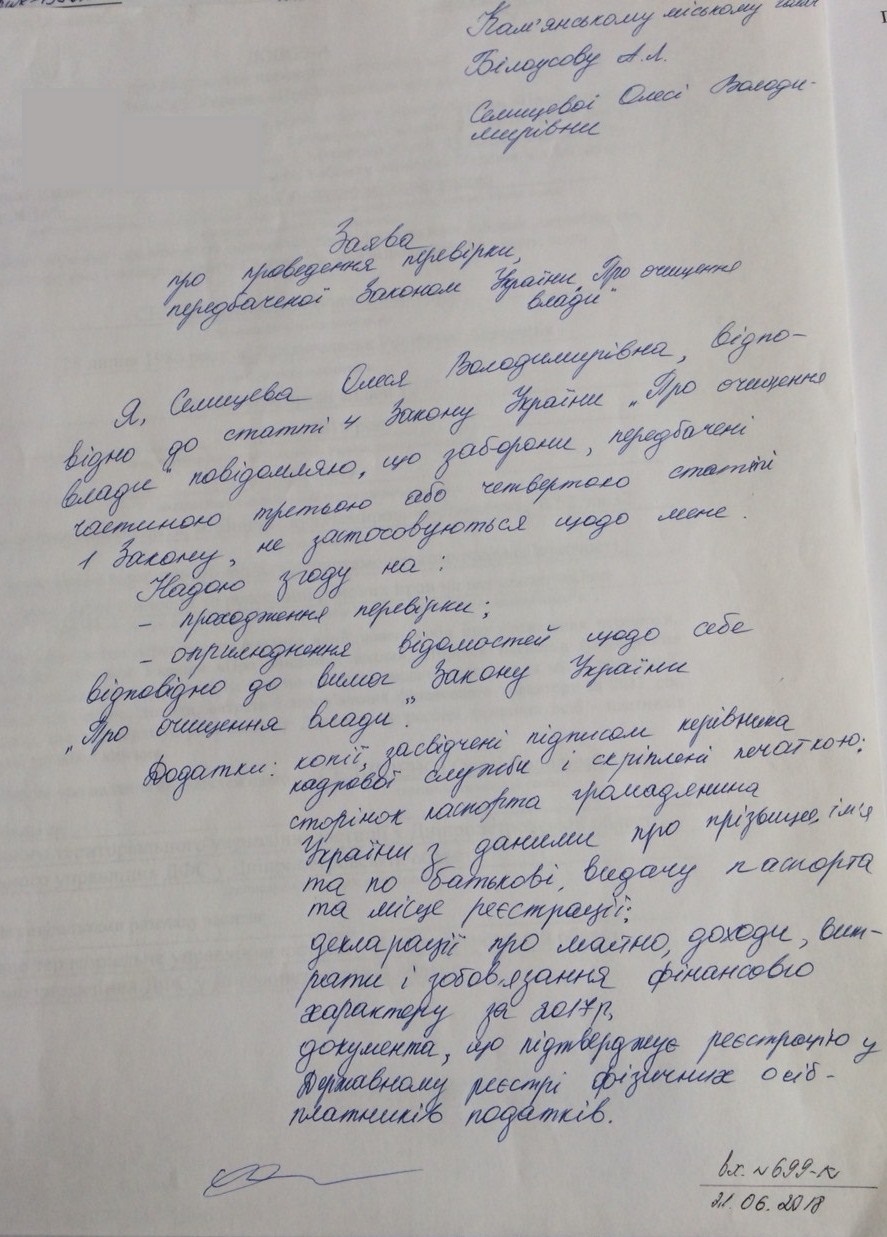 Кам'янському міському
Білоусову А.Л.
Семицевої Олесі Володи-
мирівни
Заява
про проведення перевірки,
передбаченої Законом України „Про очищення
влади"
Я, Семицева Олеся Володимирівна, відпо-
відно до статті 4 Закону України „Про очищення
влади" повідомляю, що заборони, передбачені
частиною третьою або четвертою статті
1 Закону, не застосовуються щодо мене.
Надаю згоду на:
- проходження перевірки;
- оприлюднення відомостей щодо себе
відповідно до вимог Закону України
„Про очищення влади".
Додатки: копії, засвідчені підписом керівника
кадрової служби і скріплені печаткою:
сторінок паспорта громадянина
України з даними про прізвище, ім'я
та по батькові, видачу паспорта
та місце реєстрації;
декларації про майно, доходи, вит-
рати і зобов'язання фінансового
характеру за 2017р,
документа, що підтверджує реєстрацію у
Державному реєстрі фізичних осіб-
платників податків.
вх. №699-к
21.06.2018